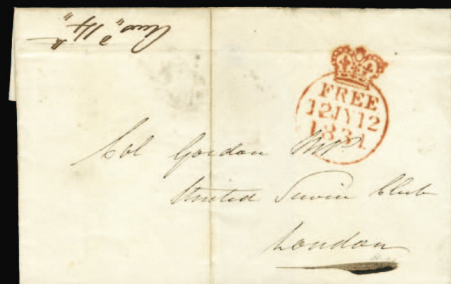 FREE
12JY12
Col Gordon MP
United Servin Club
London